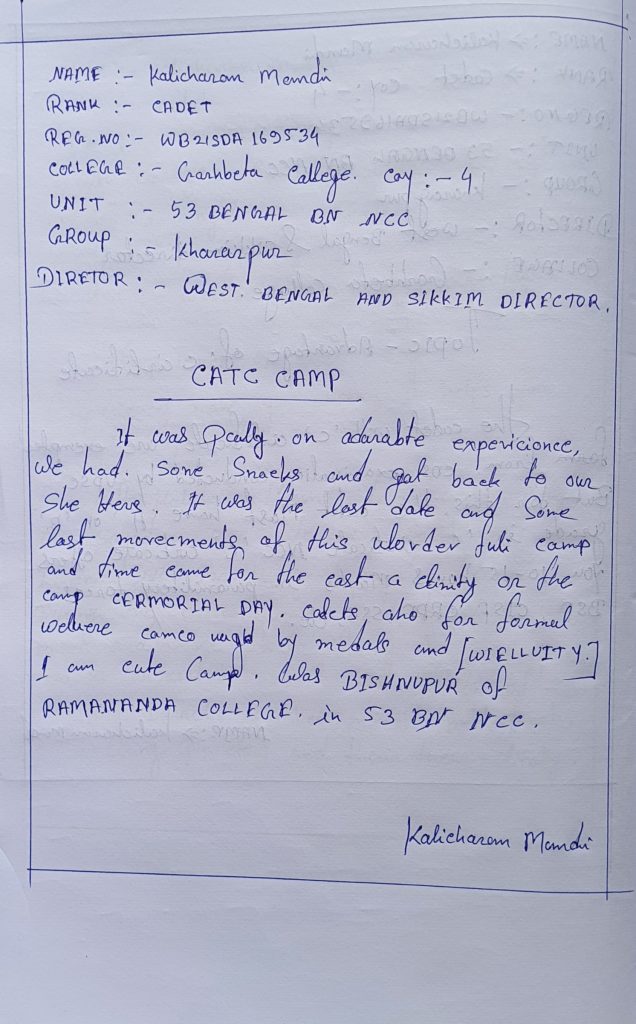 NAME :- Kalicharan Mandi
RANK :- CADET
REG. NO :- WB21SDA 169534
COLLEGE :- Garhbeta College. Coy :- 4
UNIT :- 53 BENGAL BN NCC
GROUP :- Kharagpur
DIRETOR :- WEST. BENGAL AND SIKKIM DIRECTOR.
CATC CAMP
It was on adarabte expericionce,
We had. Some Snacks and gat back to our
She Hers. It was the last date and Some
last morecments of this wlorder fuli camp
and time came for the east a clinity on the
camp CERMORIAL DAY. cadets aho for formal
weluere camco by medals and [WIELLUITY.]
I am eute Camp. Was BISHNUPUR of
RAMANANDA COLLEGE. in 53 BN NCC.
Kalicharan Mandi